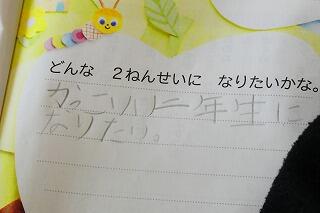 どんな 2ねんせいに なりたいかな。
かっこいい二年生に
なりたい。